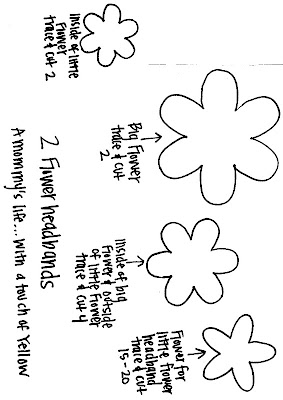 inside of little
flower
trace & cut
2
Big Flower
trace & cut
2
inside of big
flower & outside
of little flower
trace & cut 4
Flower for
little flower
headband
trace & cut
15-20
2 Flower headbands
A mommy's life... with a touch of Yellow